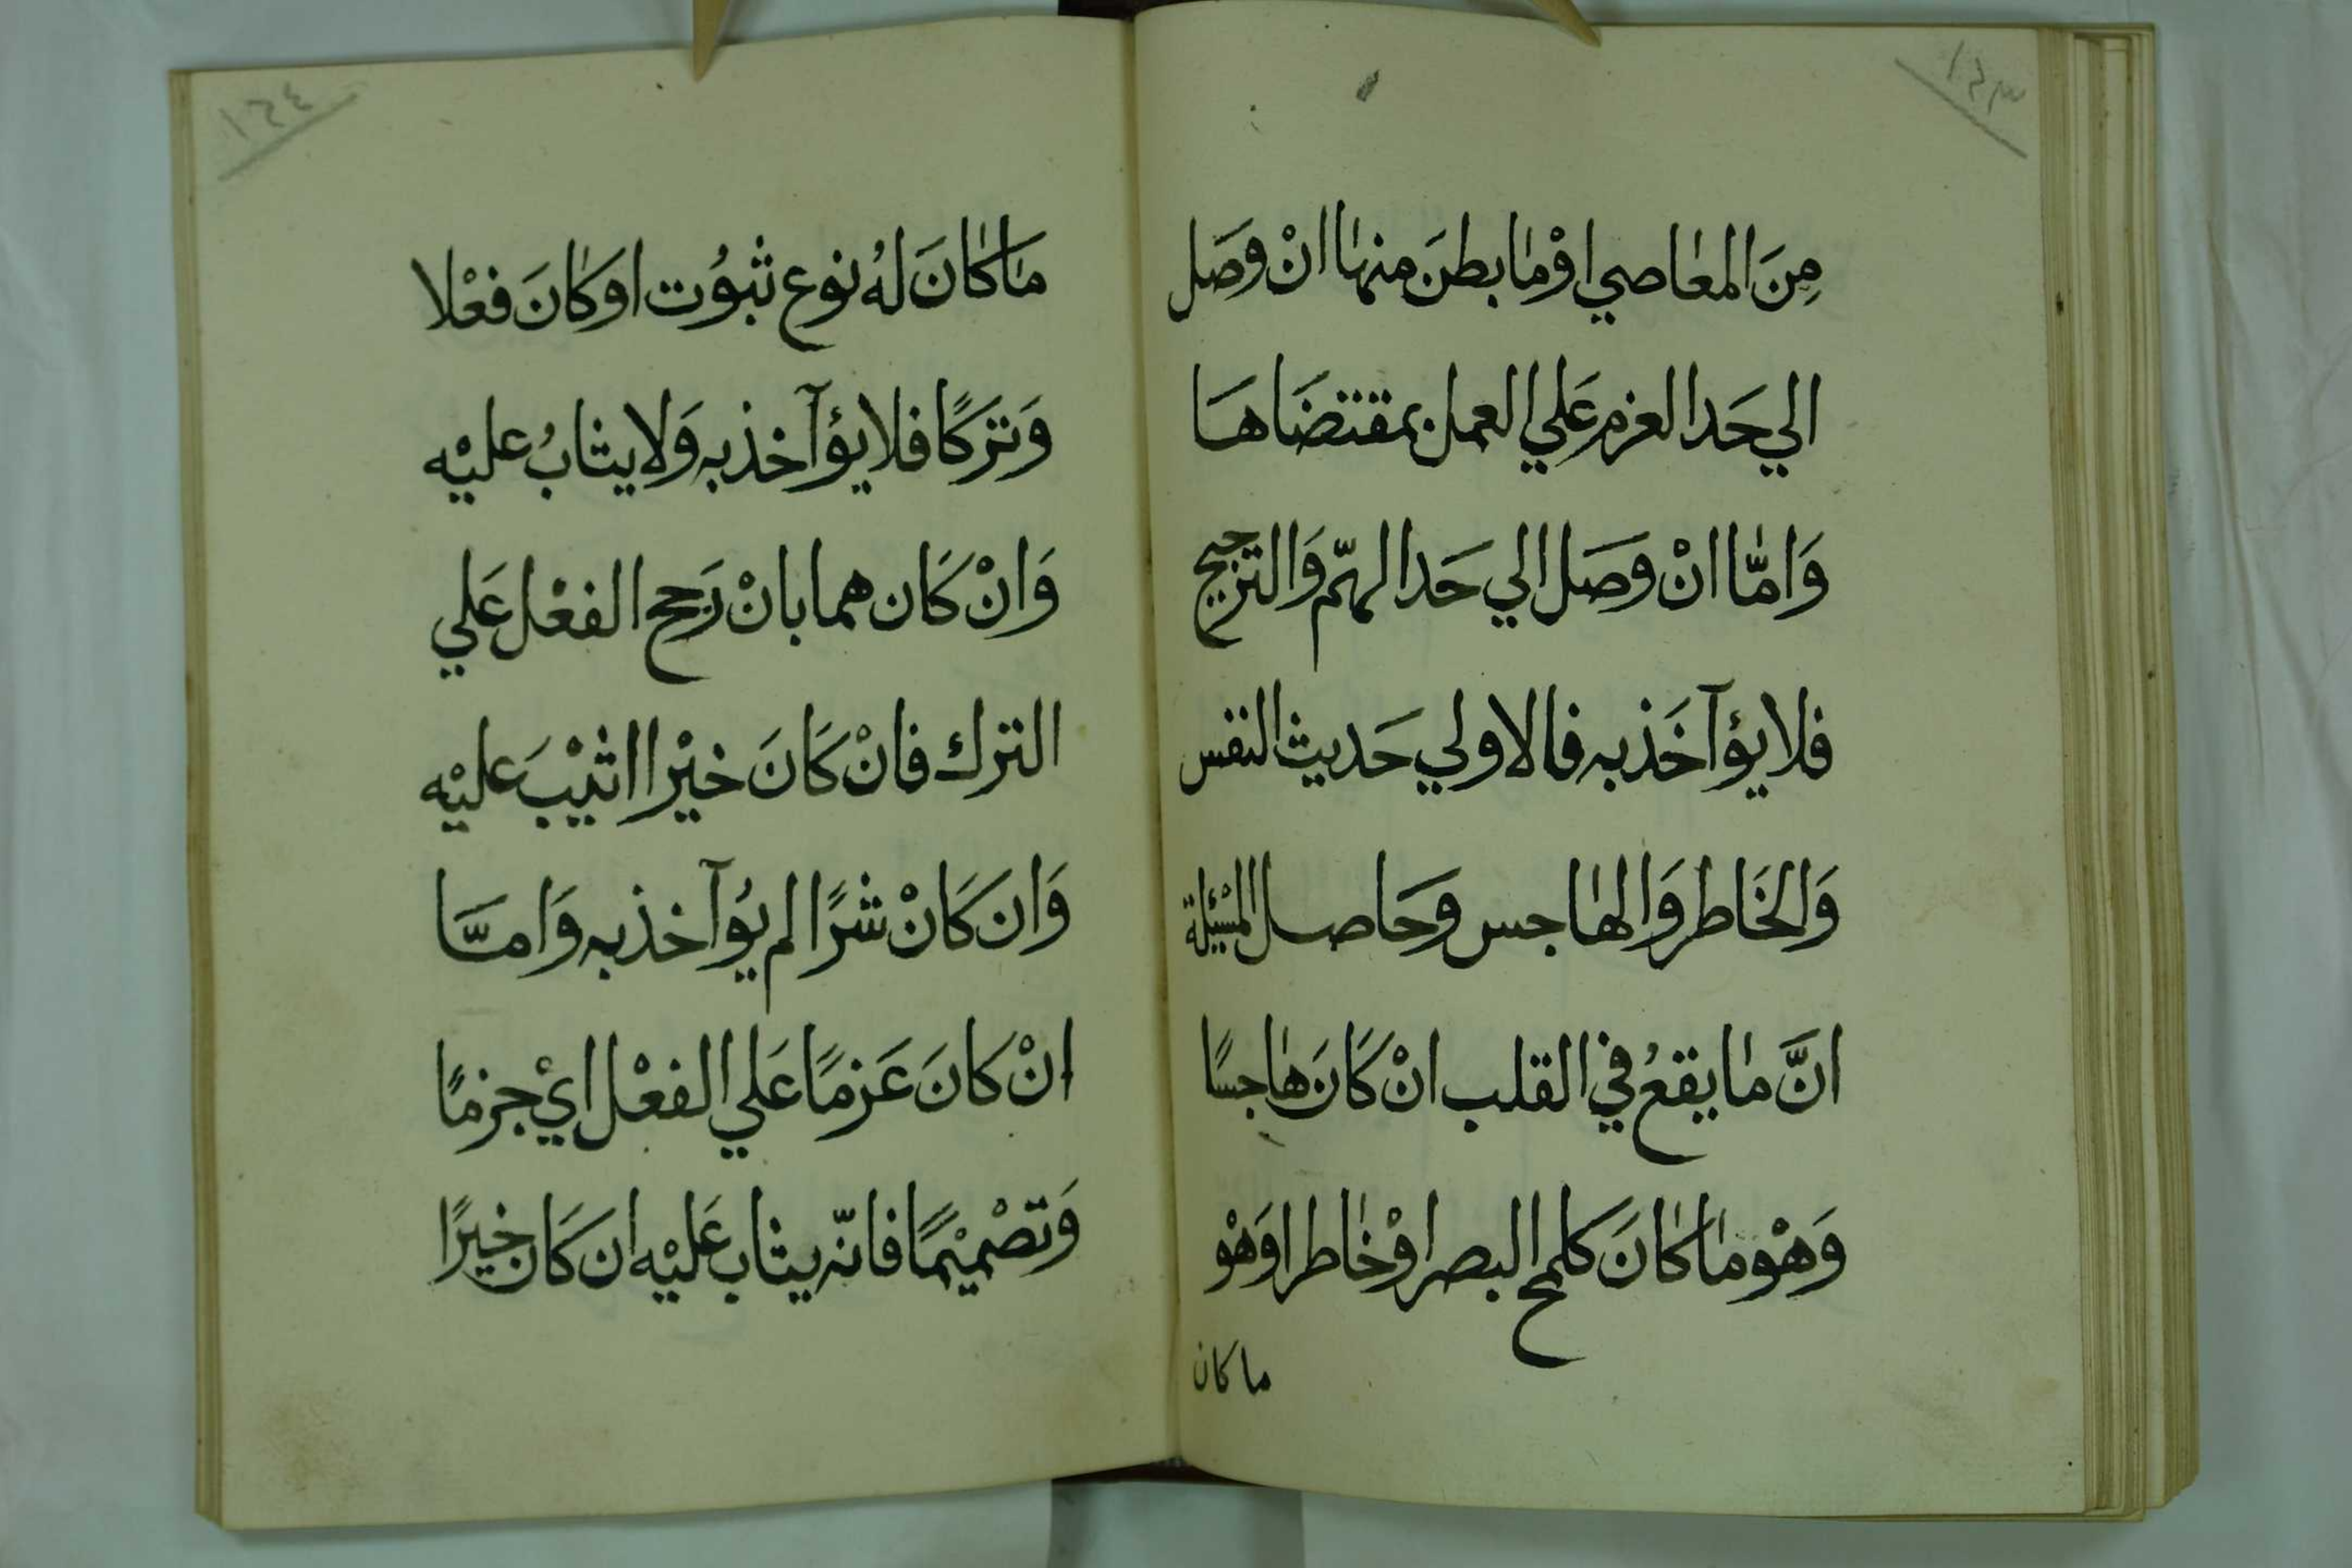 ١٤٣
مِنَ المعٰاصي اوْ مٰا بطنَ منهٰا انْ وصَل
الي حَد العزم عَلي العمل بمقتضَاهَا
وَامّٰا انْ وصَل الي حَد الهمّ وَالترجيح
فلا يؤآخَذ به فالاولي حَديث النفس
وَالخَاطر وَالهٰاجس وحَاصل المسْئلة
انَّ مٰا يقعُ في القلب انْ كَانَ هٰاجسًا
وَهْو مٰا كٰانَ كلمح البصر اوْ خٰاطرا وَهْو
ما كان
١٤٤
مٰا كٰانَ لهُ نوع ثبوُت او كٰانَ فعْلا
وَتَركًا فلا يؤآخذ به وَلا يثابُ عليْه
وَانْ كَان هما بانْ رَجح الفعْل عَلي
الترك فانْ كَانَ خيْرا اثيْبَ عليْه
وَان كَانْ شرًا لم يُؤآخذ به وَامَّا
انْ كانَ عَزمًا عَلي الفعْل ايْ جزمًا
وَتصْميْمًا فانّه يثاب عَليْه ان كَان خيرًا